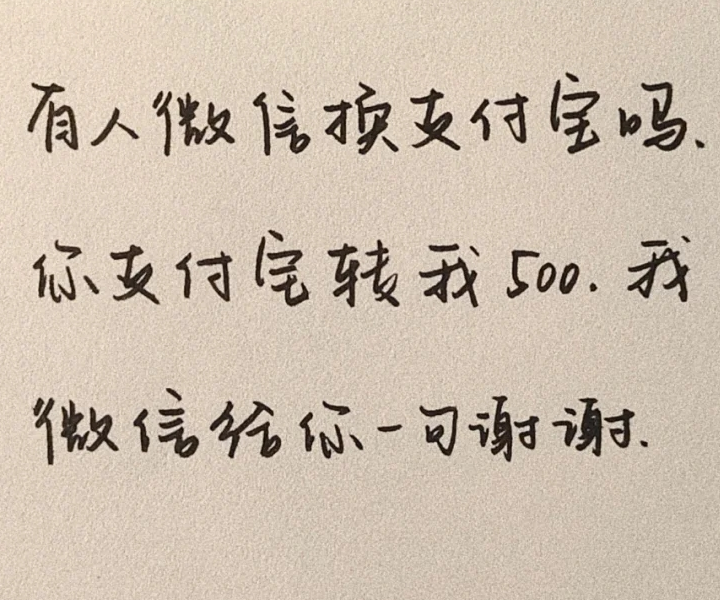 有人微信换支付宝吗、
你支付宝转我500.我
微信给你一句谢谢.